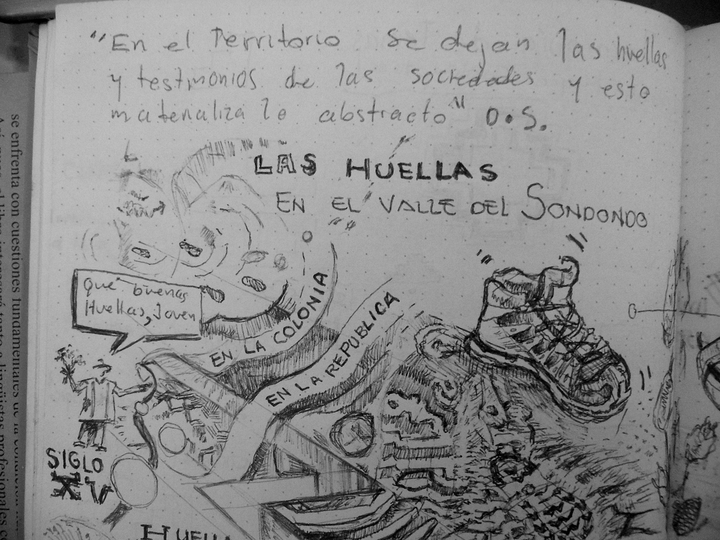 "En el Territorio se dejan las huellas
y testimonios de las sociedades y esto
materializa lo abstracto" D.S.
LAS HUELLAS
EN EL VALLE DEL SONDONDO
Qué buenas
Huellas, Joven
EN LA COLONIA
EN LA REPUBLICA
SIGLO
XV
HUELLA
se enfrenta con cuestiones fundamentales de la